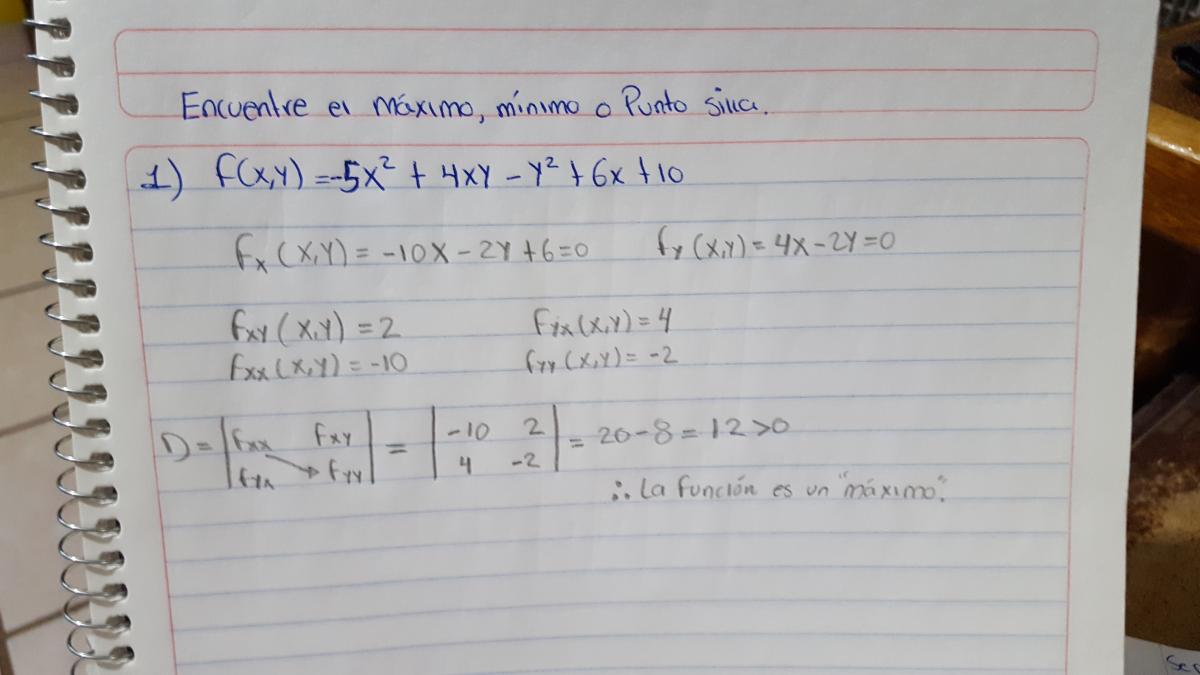 Encuentre el máximo, mínimo o Punto silla.
1) f(x,y) = -5x² + 4xy - y² + 6x + 10
fx (x,y) = -10x - 2y + 6 = 0 fy (x,y) = 4x - 2y = 0
fxy (x,y) = 2 fyx (x,y) = 4
fxx (x,y) = -10 fyy (x,y) = -2
D = | fxx fxy | = | -10 2 | = 20 - 8 = 12 > 0
| fyx → fyy | | 4 -2 |
∴ La función es un "máximo".